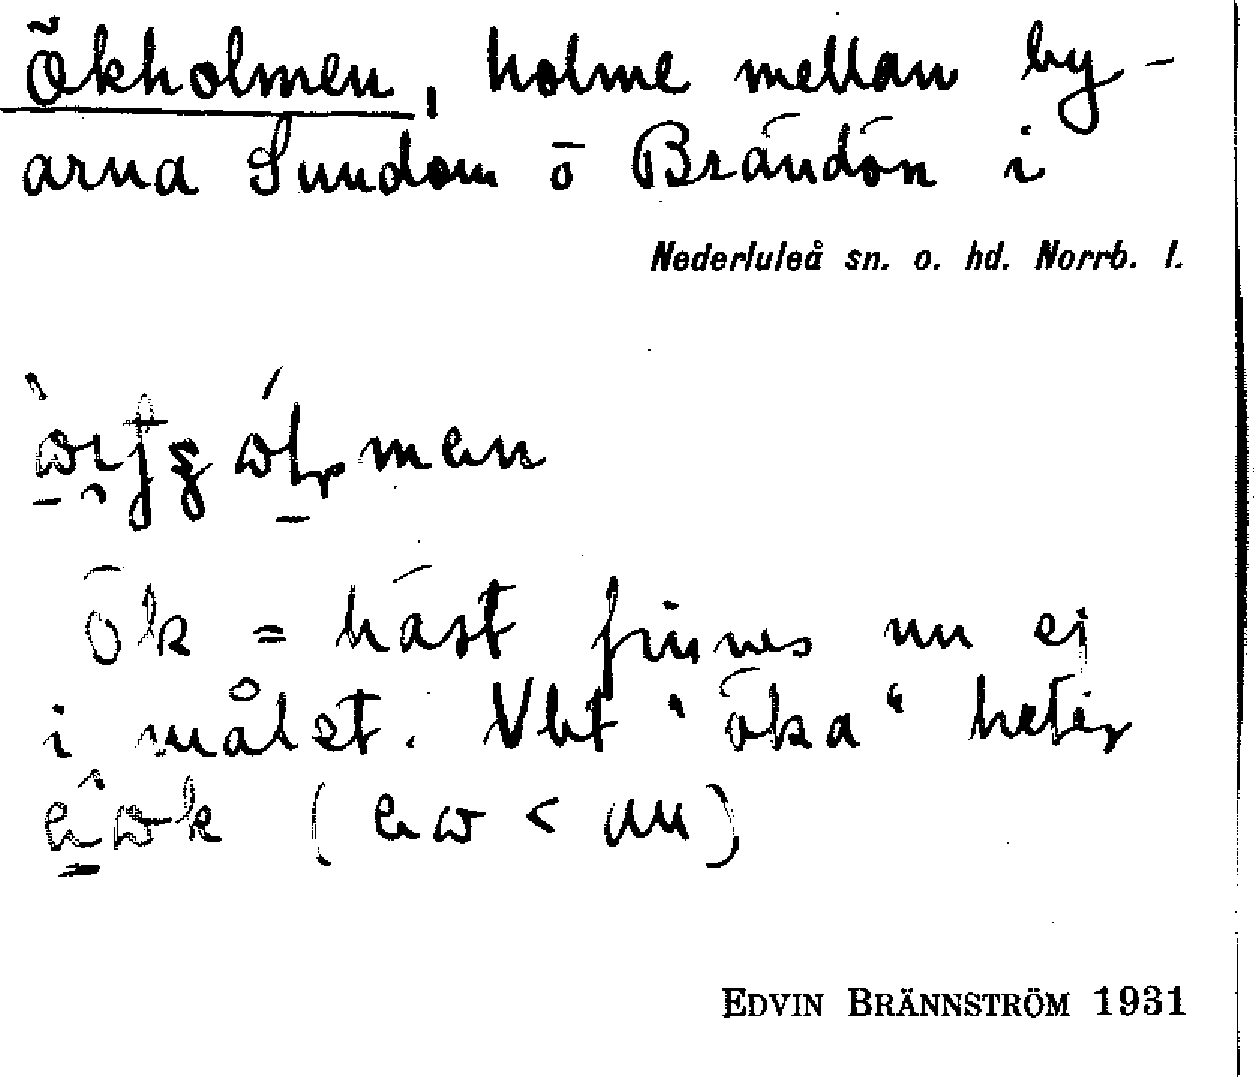 Ökholmen, holme mellan by-
arna Sundom o Brändön i
Nederluleå sn. o. hd. Norrb. l.
ök = häst finnes nu ej
i målet. Vbt "öka" heter
(      <  au)
EDVIN BRÄNNSTRÖM 1931